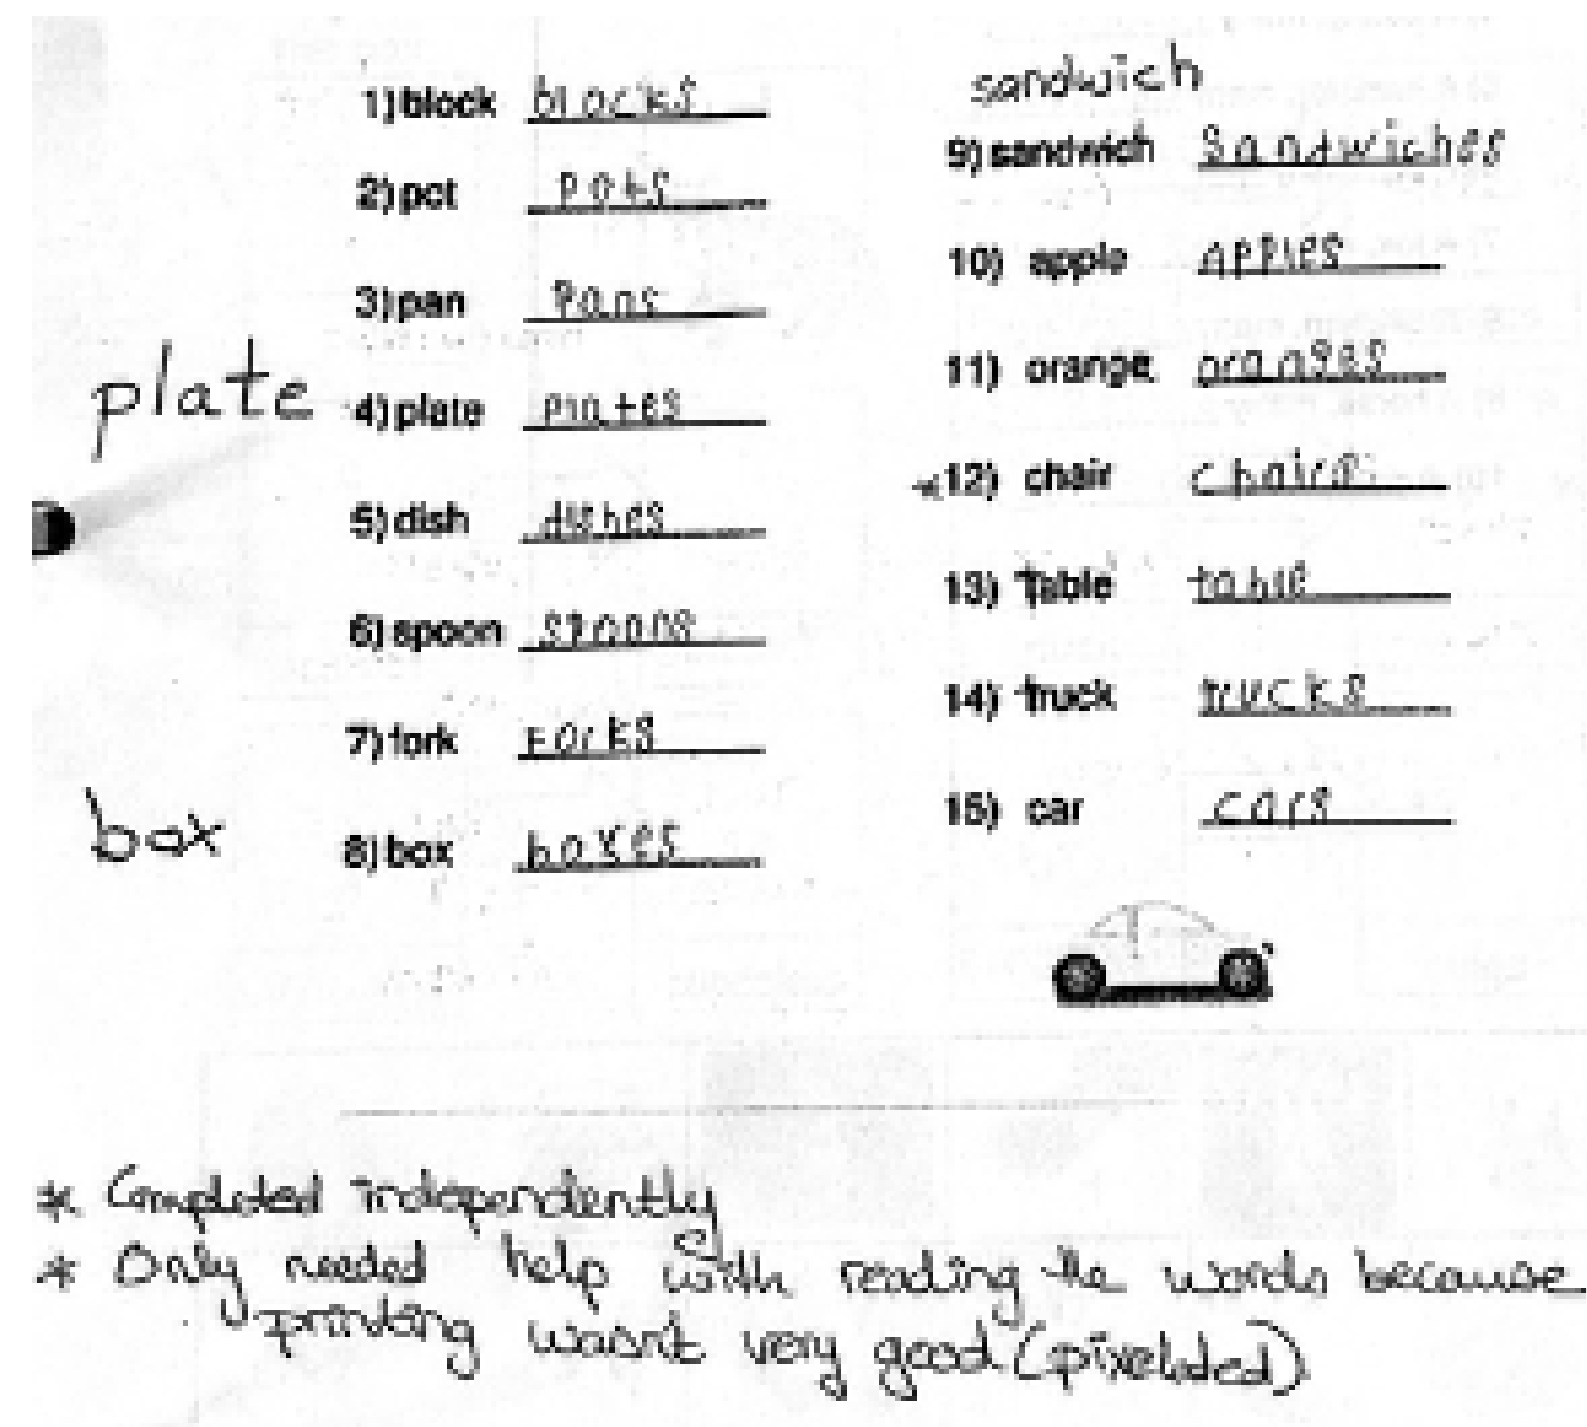 1) block blocks
2) pot pots
3) pan Pans
plate
4) plate Plates
5) dish dishes
6) spoon spoons
7) fork Forks
box
8) box boxes
sandwich
9) sandwich Sandwiches
10) apple apples
11) orange oranges
*12) chair chairs
13) table table
14) truck trucks
15) car cars
* Completed independently
* Only needed help with reading the words because
printing wasn't very good (pixelated)